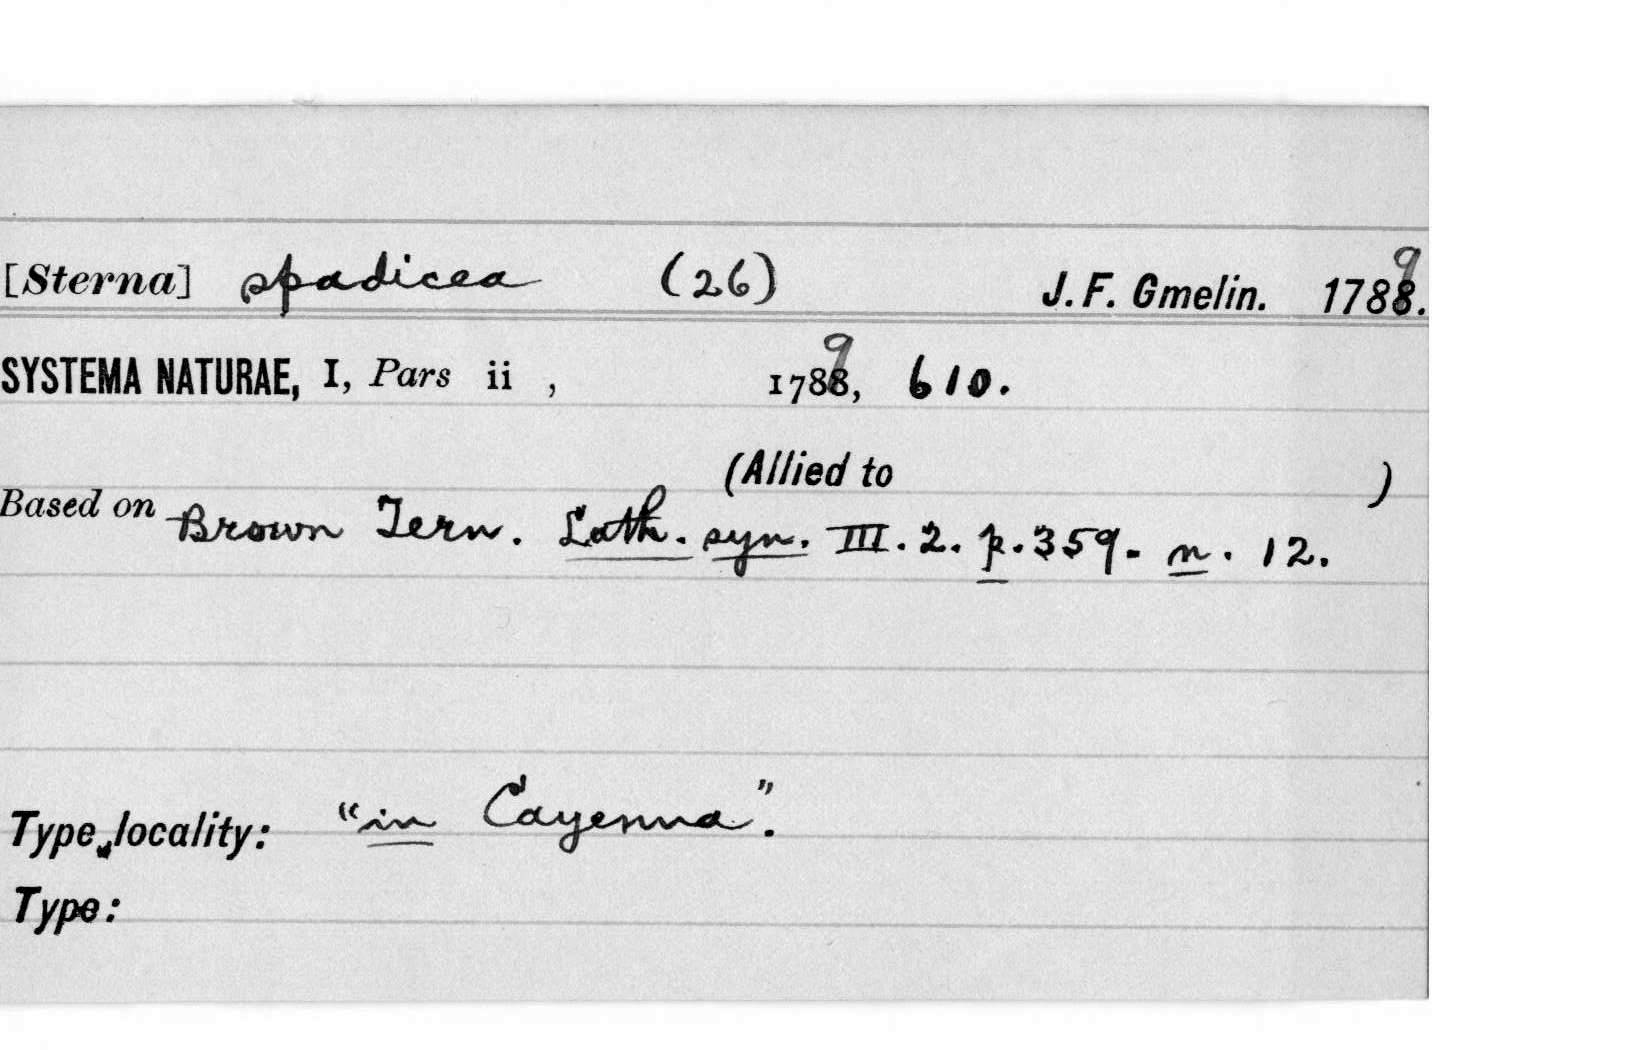 [Sterna] spadicea (26) J. F. Gmelin. 1789.
SYSTEMA NATURAE, I, Pars ii , 1789, 610.
(Allied to )
Based on Brown Tern. Lath. syn. III. 2. p. 359. n. 12.
Type locality: "in Cayenna".
Type: